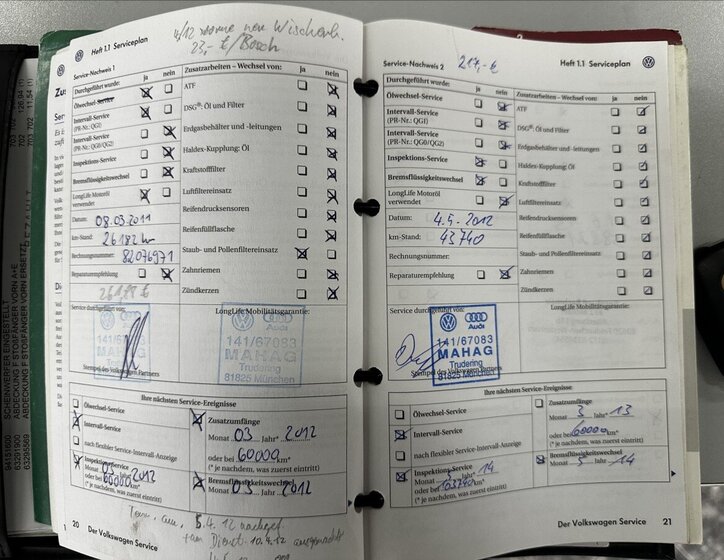 4/12 vorne neu Wischerb.
23,- €/Bosch
Heft 1.1 Serviceplan
Service-Nachweis 1
Durchgeführt wurde: ja nein
Ölwechsel-Service
Intervall-Service
(PR-Nr.: QG1)
Intervall-Service
(PR-Nr.: QG0/QG2)
Inspektions-Service
Bremsflüssigkeitswechsel
LongLife Motoröl
verwendet
Datum: 08.03.2011
km-Stand: 26182 km
Rechnungsnummer: 82076971
Reparaturempfehlung
Zusatzarbeiten – Wechsel von: ja nein
ATF
DSG®: Öl und Filter
Erdgasbehälter und -leitungen
Haldex-Kupplung: Öl
Kraftstofffilter
Luftfiltereinsatz
Reifendrucksensoren
Reifenfüllflasche
Staub- und Pollenfiltereinsatz
Zahnriemen
Zündkerzen
Service durchgeführt von:
LongLife Mobilitätsgarantie:
Audi
141/67083
MAHAG
Trudering
81825 München
Stempel des Volkswagen Partners
Audi
141/67083
MAHAG
Trudering
81825 München
Ihre nächsten Service-Ereignisse
Ölwechsel-Service
Intervall-Service
nach flexibler Service-Intervall-Anzeige
Inspektions-Service
Monat 03 2012
oder bei 60000 km*
(* je nachdem, was zuerst eintritt)
Zusatzumfänge
Monat 03 Jahr* 2012
oder bei 60000 km*
(* je nachdem, was zuerst eintritt)
Bremsflüssigkeitswechsel
Monat 03 2012
20 Der Volkswagen Service
217,- €
Service-Nachweis 2
Heft 1.1 Serviceplan
Durchgeführt wurde: ja nein
Ölwechsel-Service
Intervall-Service
(PR-Nr.: QG1)
Intervall-Service
(PR-Nr.: QG0/QG2)
Inspektions-Service
Bremsflüssigkeitswechsel
LongLife Motoröl
verwendet
Datum: 4.5.2012
km-Stand: 43740
Rechnungsnummer:
Reparaturempfehlung
Zusatzarbeiten – Wechsel von: ja nein
ATF
DSG®: Öl und Filter
Erdgasbehälter und -leitungen
Haldex-Kupplung: Öl
Kraftstofffilter
Luftfiltereinsatz
Reifendrucksensoren
Reifenfüllflasche
Staub- und Pollenfiltereinsatz
Zahnriemen
Zündkerzen
Service durchgeführt von:
LongLife Mobilitätsgarantie:
Audi
141/67083
MAHAG
Trudering
81825 München
Stempel des Volkswagen Partners
Ihre nächsten Service-Ereignisse
Ölwechsel-Service
Intervall-Service
nach flexibler Service-Intervall-Anzeige
Inspektions-Service
Monat 5 14
oder bei 103740 km*
(* je nachdem, was zuerst eintritt)
Zusatzumfänge
Monat 5 Jahr* 13
oder bei 60000 km*
(* je nachdem, was zuerst eintritt)
Bremsflüssigkeitswechsel
Monat 5 14
Der Volkswagen Service 21